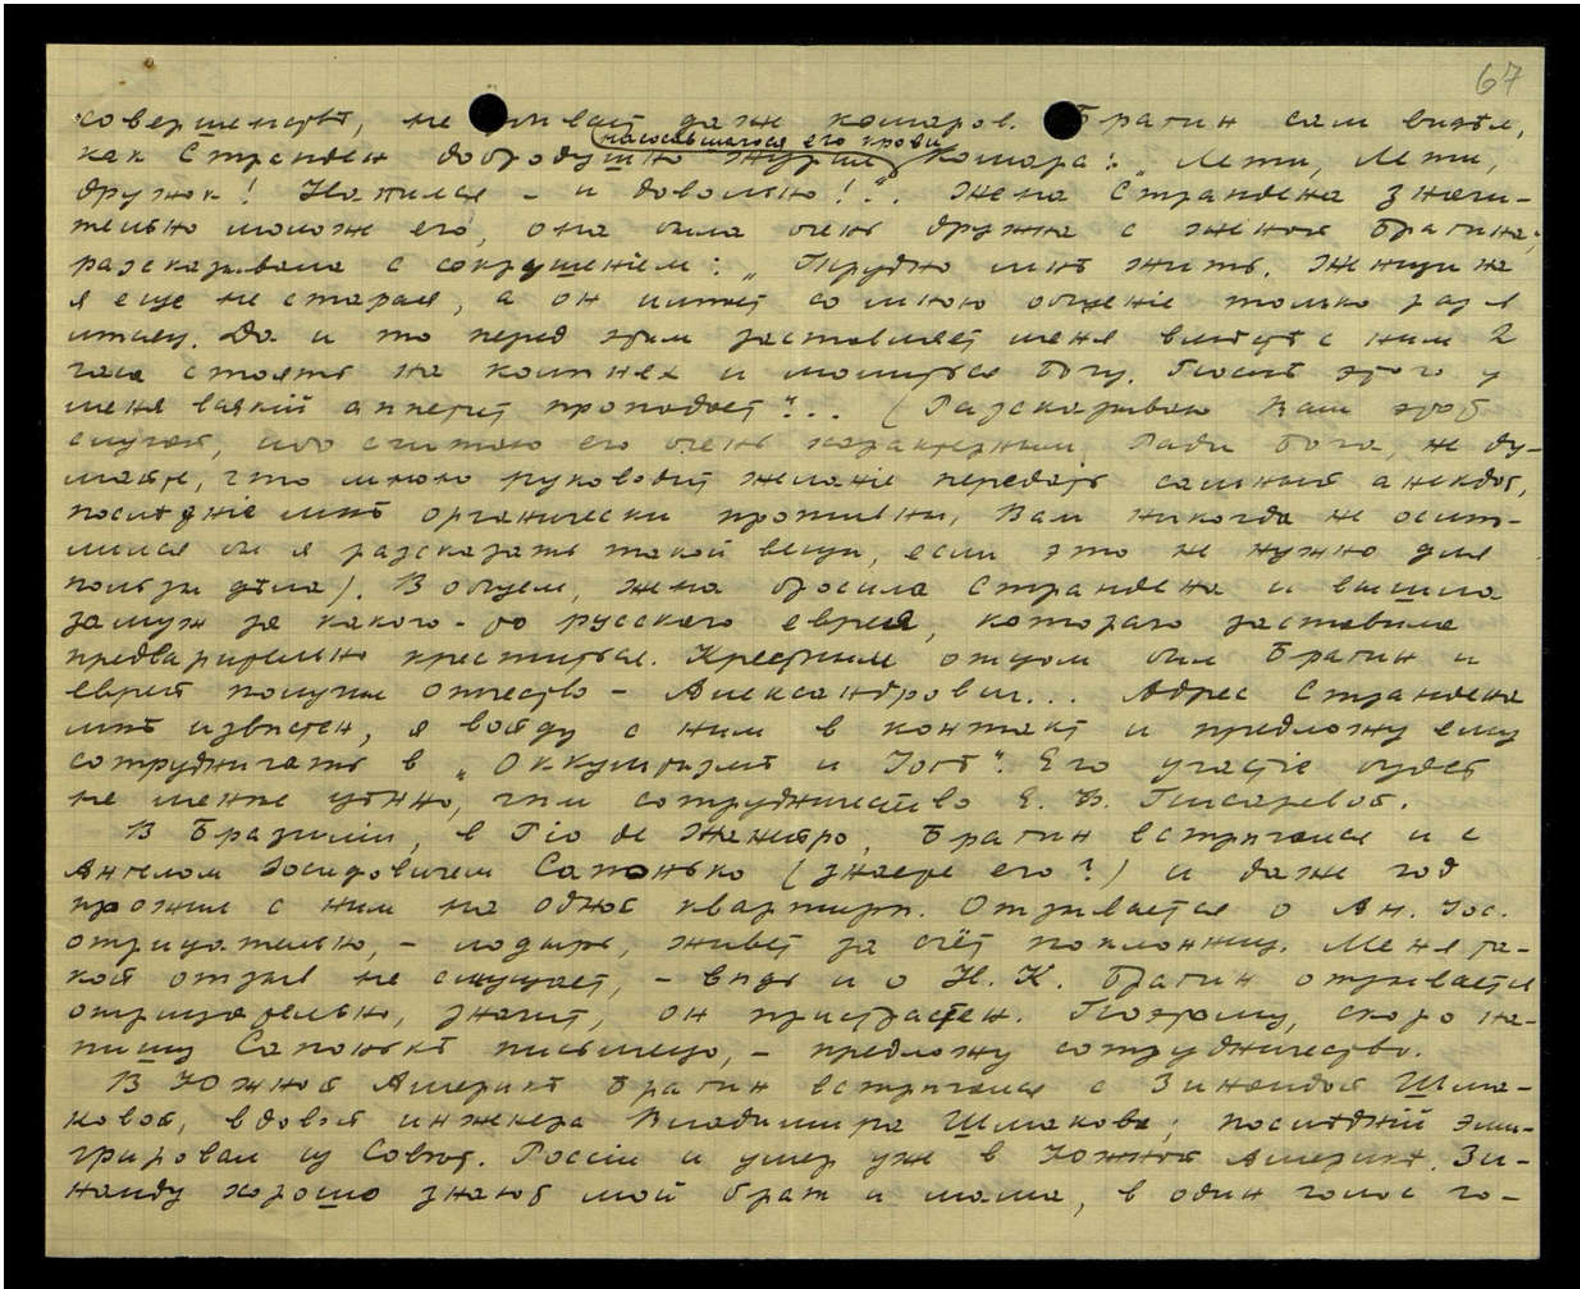 67
совершенствѣ, не убивает даже комаров. Брагин сам видѣл,
насосавшагося его крови
как Странден добродушно журил комара: „Лети, лети,
дружок! Напился - и довольно!“. Жена Страндена значи-
тельно моложе его, она была очень дружна с женой Брагина;
разсказывала с сокрушеніем: „Трудно мнѣ жить. Женщина
я еще не старая, а он имѣет со мною общеніе только раз в
мѣсяц. Да и то перед этим заставляет меня вмѣстѣ с ним 2
часа стоять на колѣнях и молиться Богу. Послѣ этого у
меня всякій аппетит пропадает“... (Разсказываю Вам этот
случай, ибо считаю его очень характерным. Ради Бога, не ду-
майте, что мною руководит желаніе передать сальный анекдот,
послѣдніе мнѣ органически противны, Вам никогда не осмѣ-
лился бы я разсказать такой вещи, если это не нужно для
пользы дѣла). В общем, жена бросила Страндена и вышла
замуж за какого-то русскаго еврея, котораго заставила
предварительно креститься. Крестным отцом был Брагин и
еврей получил отчество - Александрович... Адрес Страндена
мнѣ извѣстен, я войду с ним в контакт и предложу ему
сотрудничать в „Оккультизмѣ и Іогѣ“. Его участіе будет
не менѣе цѣнно, чѣм сотрудничество Е. Ф. Писаревой.
В Бразиліи, в Ріо де Жанейро, Брагин встрѣчался и с
Ангелом Іосифовичем Сапонько (знаете его?) и даже год
прожил с ним на одной квартирѣ. Отзывается о Ан. Іос.
отрицательно, - лодырь, живет за счёт поклонниц. Меня та-
кой отзыв не смущает, - вѣдь и о Н. К. Брагин отзывается
отрицательно, значит, он пристрастен. Поэтому, скоро на-
пишу Сапонькѣ письмецо, - предложу сотрудничество.
В Южной Америкѣ Брагин встрѣчался с Зинаидой Шма-
ковой, вдовой инженера Владимира Шмакова; послѣдній эми-
грировал из Совѣтс. Россіи и умер уже в Южной Америкѣ. Зи-
наиду хорошо знают мой брат и мама, в один голос го-